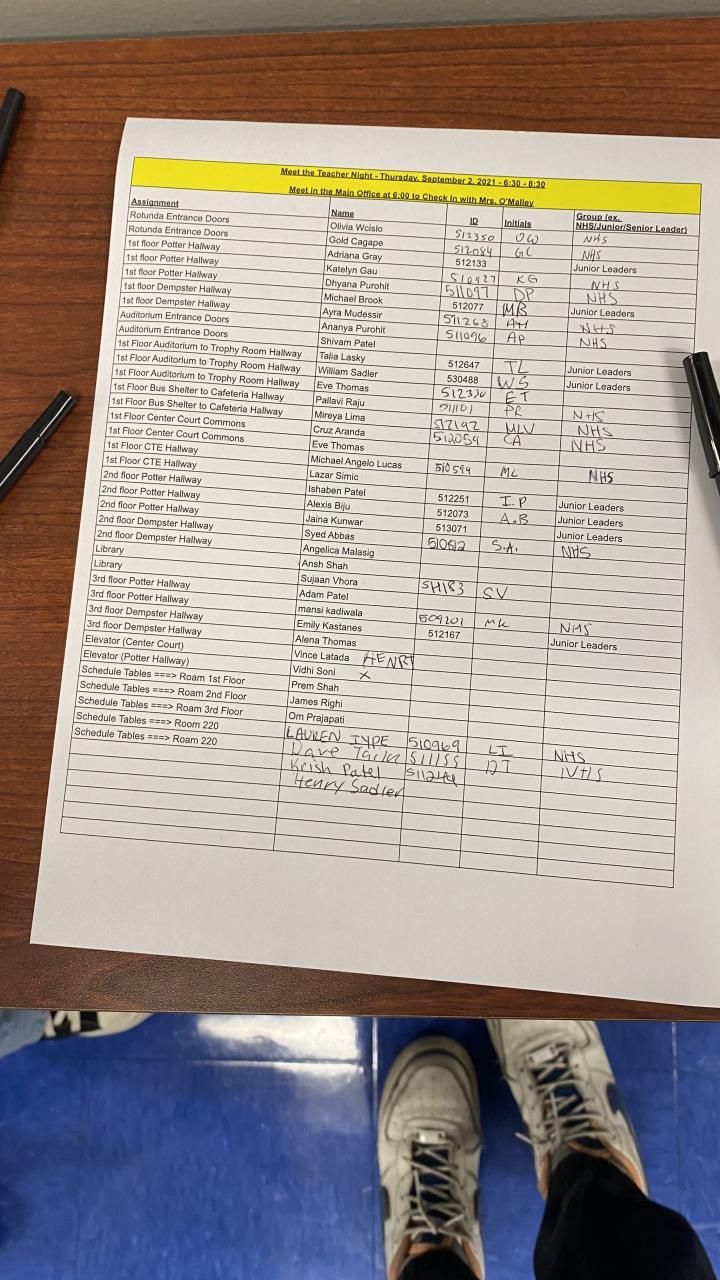 Meet the Teacher Night - Thursday, September 2, 2021 - 6:30 - 8:30
Meet in the Main Office at 6:00 to Check In with Mrs. O'Malley
Assignment Name ID Initials Group (ex. NHS/Junior/Senior Leader)
Rotunda Entrance Doors Olivia Wcislo 512350 OW NHS
Rotunda Entrance Doors Gold Cagape 512084 GC NHS
1st floor Potter Hallway Adriana Gray 512133 Junior Leaders
1st floor Potter Hallway Katelyn Gau 510927 KG NHS
1st floor Potter Hallway Dhyana Purohit 511097 DP NHS
1st floor Dempster Hallway Michael Brook 512077 MB Junior Leaders
1st floor Dempster Hallway Ayra Mudessir 511268 AM NHS
Auditorium Entrance Doors Ananya Purohit 511096 AP NHS
Auditorium Entrance Doors Shivam Patel
1st Floor Auditorium to Trophy Room Hallway Talia Lasky 512647 TL Junior Leaders
1st Floor Auditorium to Trophy Room Hallway William Sadler 530488 WS Junior Leaders
1st Floor Auditorium to Trophy Room Hallway Eve Thomas ET
1st Floor Bus Shelter to Cafeteria Hallway Pallavi Raju 511101 PR NHS
1st Floor Bus Shelter to Cafeteria Hallway Mireya Lima 512192 MLV NHS
1st Floor Center Court Commons Cruz Aranda 512059 CA NHS
1st Floor Center Court Commons Eve Thomas
1st Floor CTE Hallway Michael Angelo Lucas 510594 ML NHS
1st Floor CTE Hallway Lazar Simic
2nd floor Potter Hallway Ishaben Patel 512251 I.P Junior Leaders
2nd floor Potter Hallway Alexis Biju 512073 A.B Junior Leaders
2nd floor Potter Hallway Jaina Kunwar 513071 Junior Leaders
2nd floor Dempster Hallway Syed Abbas 510812 S.A. NHS
2nd floor Dempster Hallway Angelica Malasig
Library Ansh Shah
Library Sujaan Vhora 511183 SV
3rd floor Potter Hallway Adam Patel
3rd floor Potter Hallway mansi kadiwala 509201 MK NHS
3rd floor Dempster Hallway Emily Kastanes 512167 Junior Leaders
3rd floor Dempster Hallway Alena Thomas
Elevator (Center Court) Vince Latada HENRY
Elevator (Potter Hallway) Vidhi Soni X
Schedule Tables ===> Roam 1st Floor Prem Shah
Schedule Tables ===> Roam 2nd Floor James Righi
Schedule Tables ===> Roam 3rd Floor Om Prajapati
Schedule Tables ===> Room 220 LAUREN IYPE 510969 LI NHS
Schedule Tables ===> Roam 220 Dave 511155 DT NHS
Krish Patel 511244
Henry Sadler